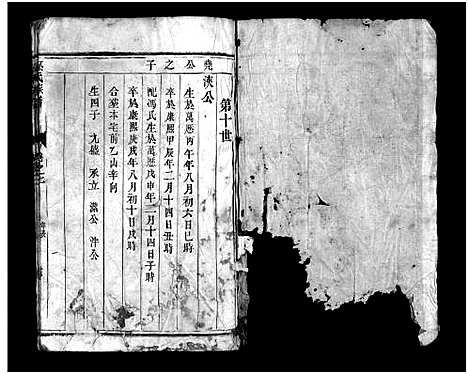 第十世
堯公之子
浹公
生於萬歷丙午年八月初六日巳時
卒於康熙甲辰年二月十四日丑時
配馮氏生於萬歷戊申年二月十四日子時
卒於康熙庚戌年八月初十日戌時
合塟本宅前乙山辛向
生四子 九德 承立 濼公 沖公